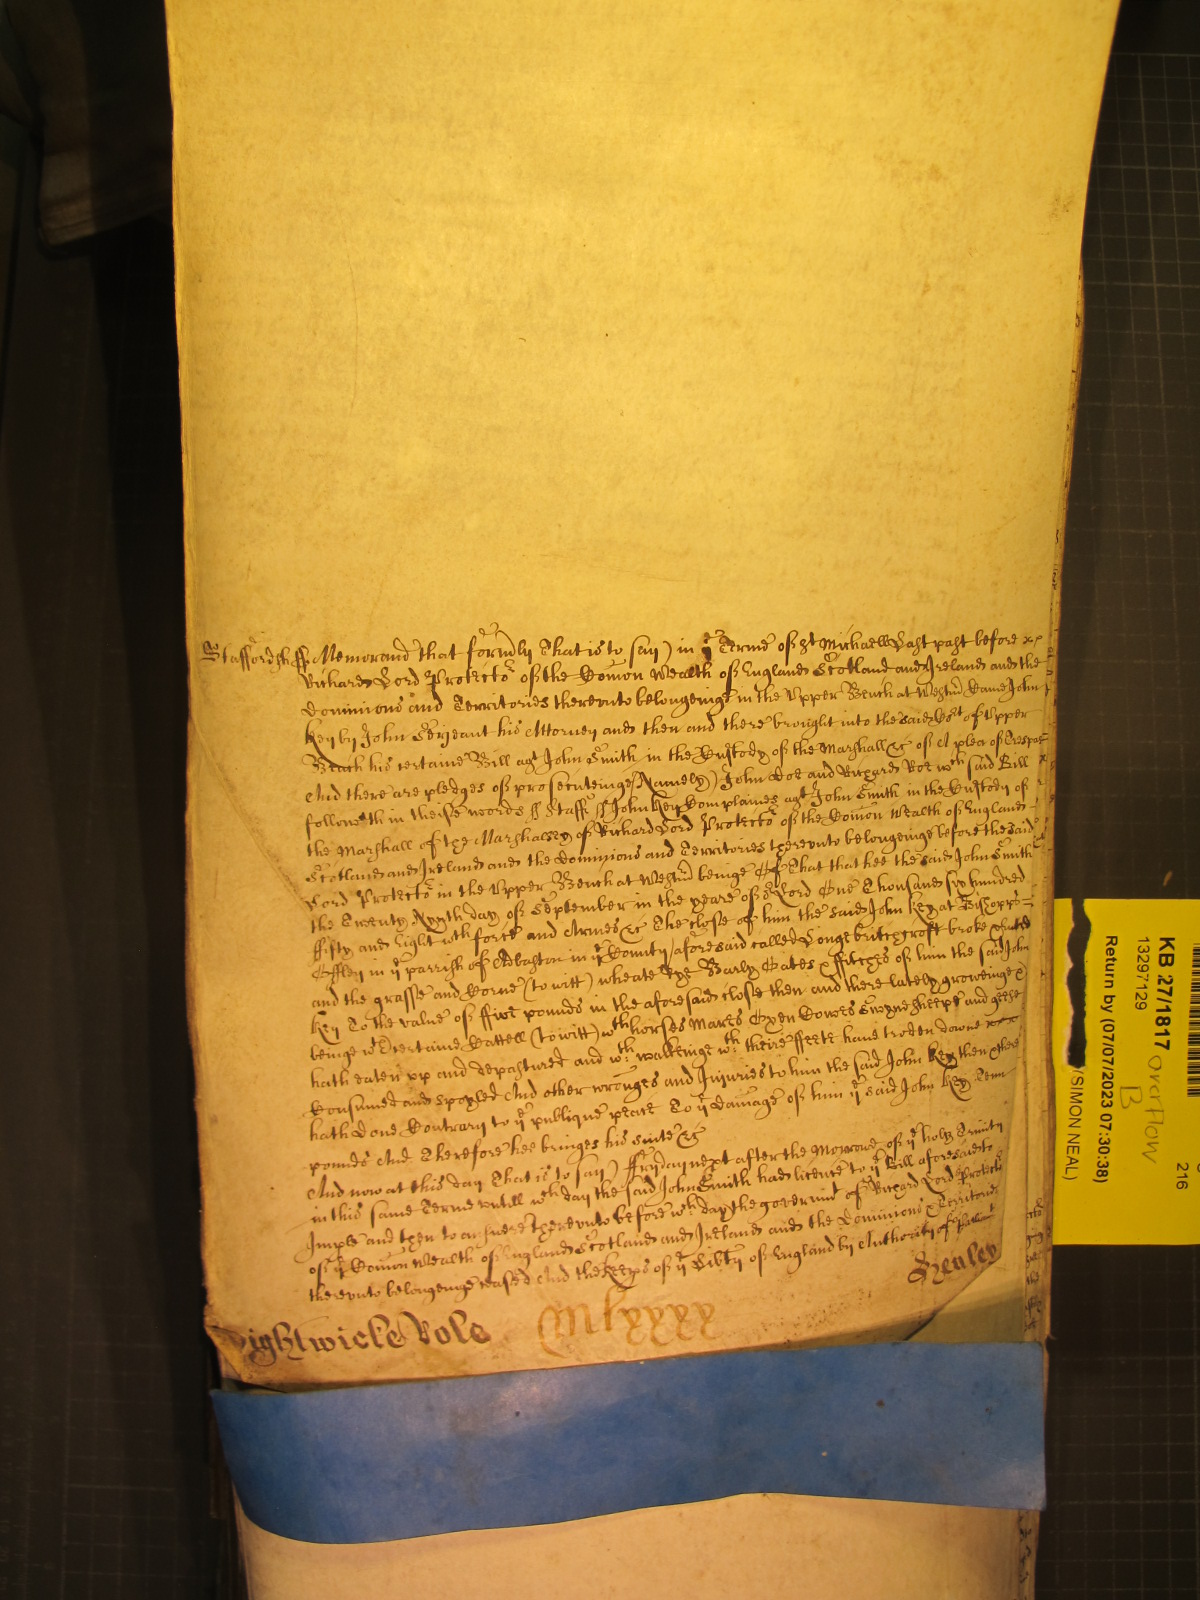 Staffordsh ss Memorand that formrly That is to say) in ye Terme of St Michaell Last past before
Richard Lord Protector of the Comon Wealth of England Scotland and Ireland and the
Dominions and Territories thereunto belongeinge in the Upper Bench at Westmr Came John
Key by John Serjeant his Attorney and then and there brought into the said Cort of Upper
Bench his certaine Bill agt John Smith in the Custody of the Marshall &c of A plea of Trespas
And there are pledges of prosecuteinge (Namely) John Doe and Richard Roe wch said Bill
followeth in theise words ss Staff ss John Key Complaines agt John Smith in the Custody of
the Marshall of the Marshallsey of Richard Lord Protector of the Comon Wealth of England
Scotland and Ireland and the Dominions and Territories thereunto belongeinge before the said
Lord Protector in the Upper Bench at Westmr beinge Of That that hee the said John Smith
the Twenty day of September in the yeare of or Lord One Thousand six hundred
fifty and Eight with force and Armes &c The close of him the said John Key at Bishopps
Offley in ye parrish of Adbaston in ye County aforesaid called Longe broke
and the grasse and Corne (to witt) wheate Rye Barly Oates & ffitches of him the said John
Key To the value of ffive pounds in the aforesaid close then and there lately groweinge &
beinge wth certaine Cattell (to witt) wth horses Mares Oxen Cowes Swyne sheepe and geese
hath eaten up and depastured and wth walkeinge wth theire ffeete have troden downe
Consumed and spoyled And other wronges and Injuries to him the said John Key then & there
hath done Contrary to ye publique peace To ye damage of him ye said John Key Tenn
pounds And Therefore hee bringes his suite &c
And now at this day That is to say) ffryday next after the Morrow of ye holy Trinity
in this same Terme untill wch day the said John Smith had licence to ye Bill aforesaid to
Imple and then to answere thereunto before wch day the governmt of Richard Lord Protector
of ye Comon Wealth of England Scotland and Ireland and the Dominions & Territories
thereunto belongeinge ceased And the Keeprs of ye Libty of England by Authority of
Henley
ightwicke Role Mlxxxx
KB 27/1817
13297129
Overflow
B
216
Return by (07/07/2023 07:30:38)
/SIMON NEAL)